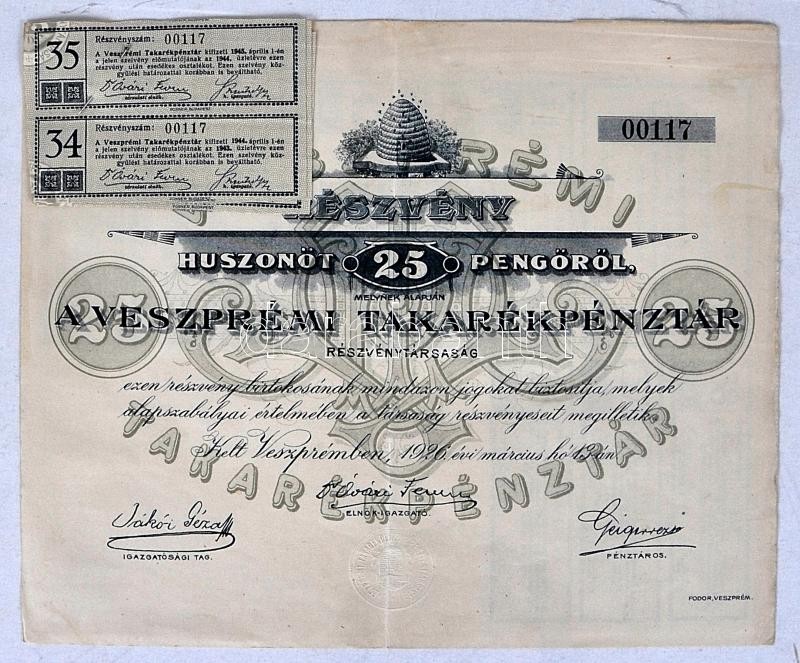 35
Részvényszám: 00117
A Veszprémi Takarékpénztár kifizeti 1945. április 1-én
a jelen szelvény előmutatójának az 1944. üzletévre ezen
részvény után esedékes osztalékot. Ezen szelvény köz-
gyűlési határozattal korábban is beváltható.
Dr Óvári Ferenc
társulati elnök.
h. igazgató.
34
Részvényszám: 00117
A Veszprémi Takarékpénztár kifizeti 1944. április 1-én
a jelen szelvény előmutatójának az 1943. üzletévre ezen
részvény után esedékes osztalékot. Ezen szelvény köz-
gyűlési határozattal korábban is beváltható.
Dr Óvári Ferenc
társulati elnök.
h. igazgató.
00117
RÉSZVÉNY
HUSZONÖT 25 PENGŐRŐL,
MELYNEK ALAPJÁN
A VESZPRÉMI TAKARÉKPÉNZTÁR
RÉSZVÉNYTÁRSASÁG
25 25
ezen részvény birtokosának mindazon jogokat biztosítja, melyek
alapszabályai értelmében a társaság részvényeseit megilletik.
Kelt Veszprémben, 1926. évi március hó 13-án
TAKARÉKPÉNZTÁR
Dr Óvári Ferenc
ELNÖK-IGAZGATÓ.
Jákói Géza
IGAZGATÓSÁGI TAG.
PÉNZTÁROS.
FODOR, VESZPRÉM.